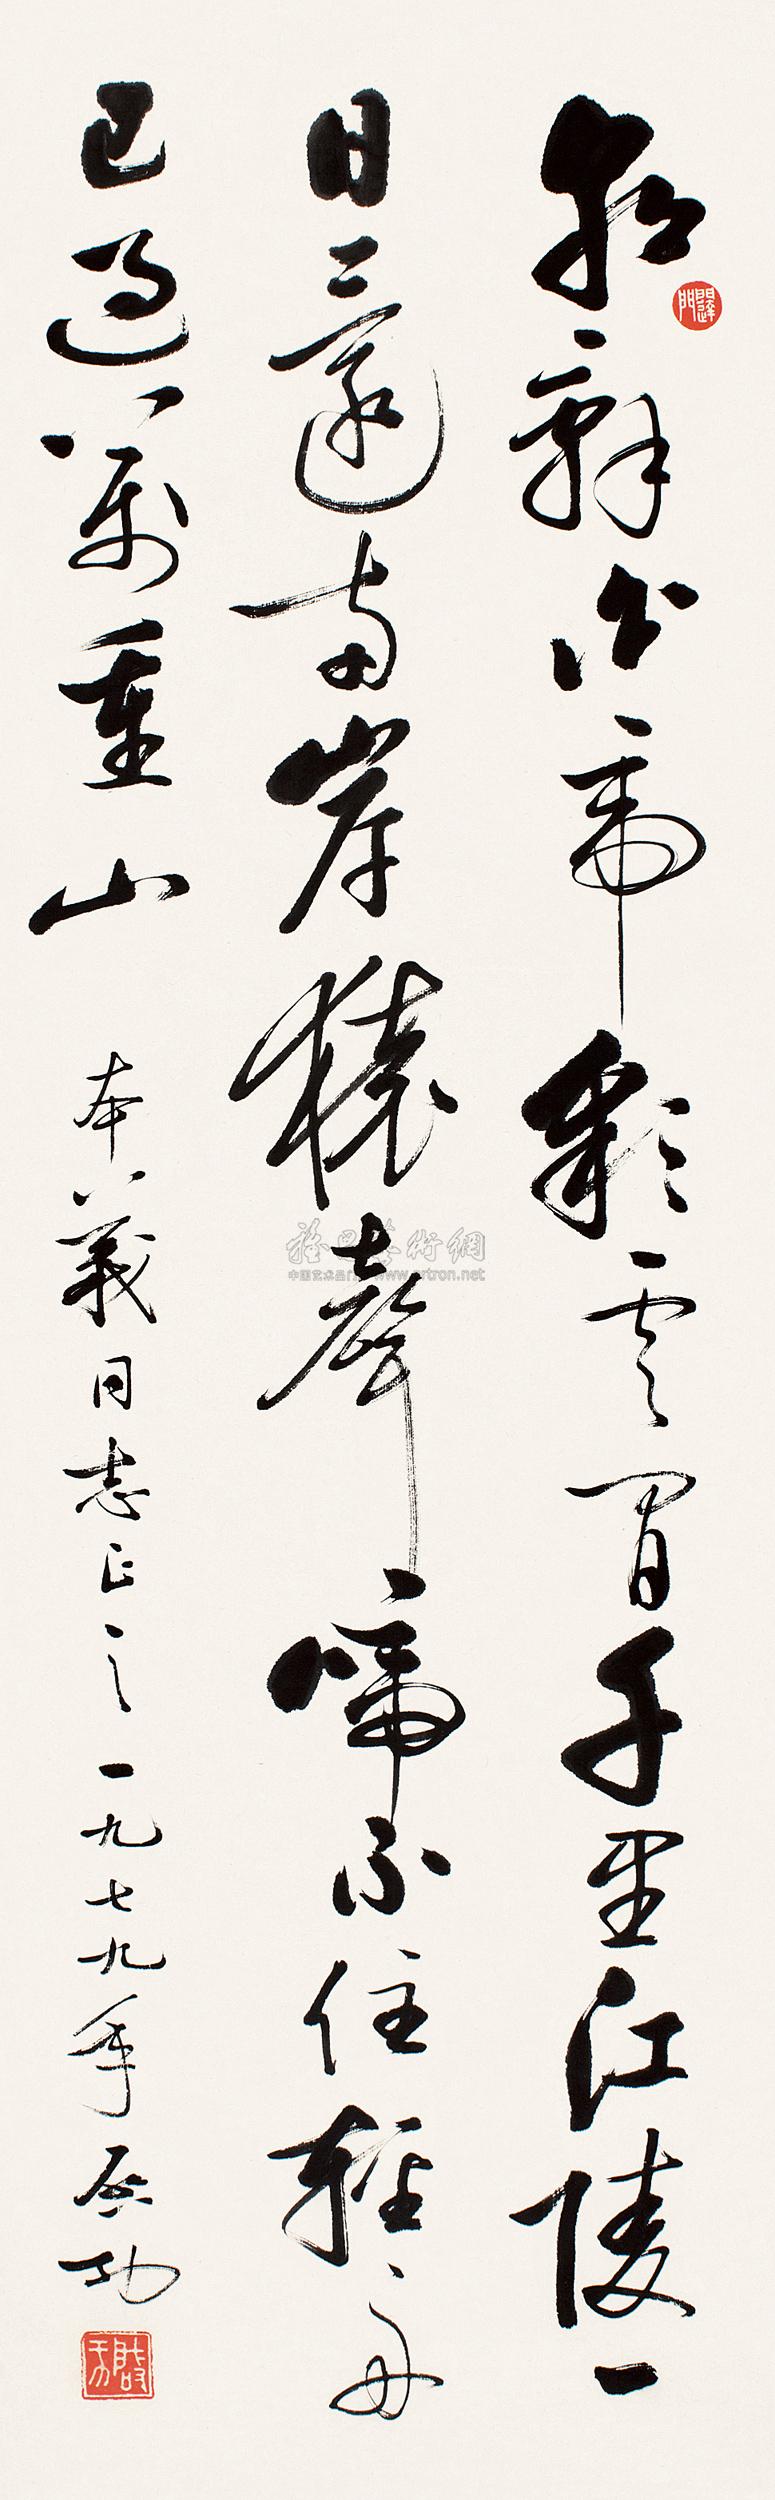 朝辭白帝彩雲間千里江陵一
日還兩岸猿聲啼不住輕舟
已過萬重山
本義同志正之一九七九年啟功
雅昌藝術網
www.artron.net